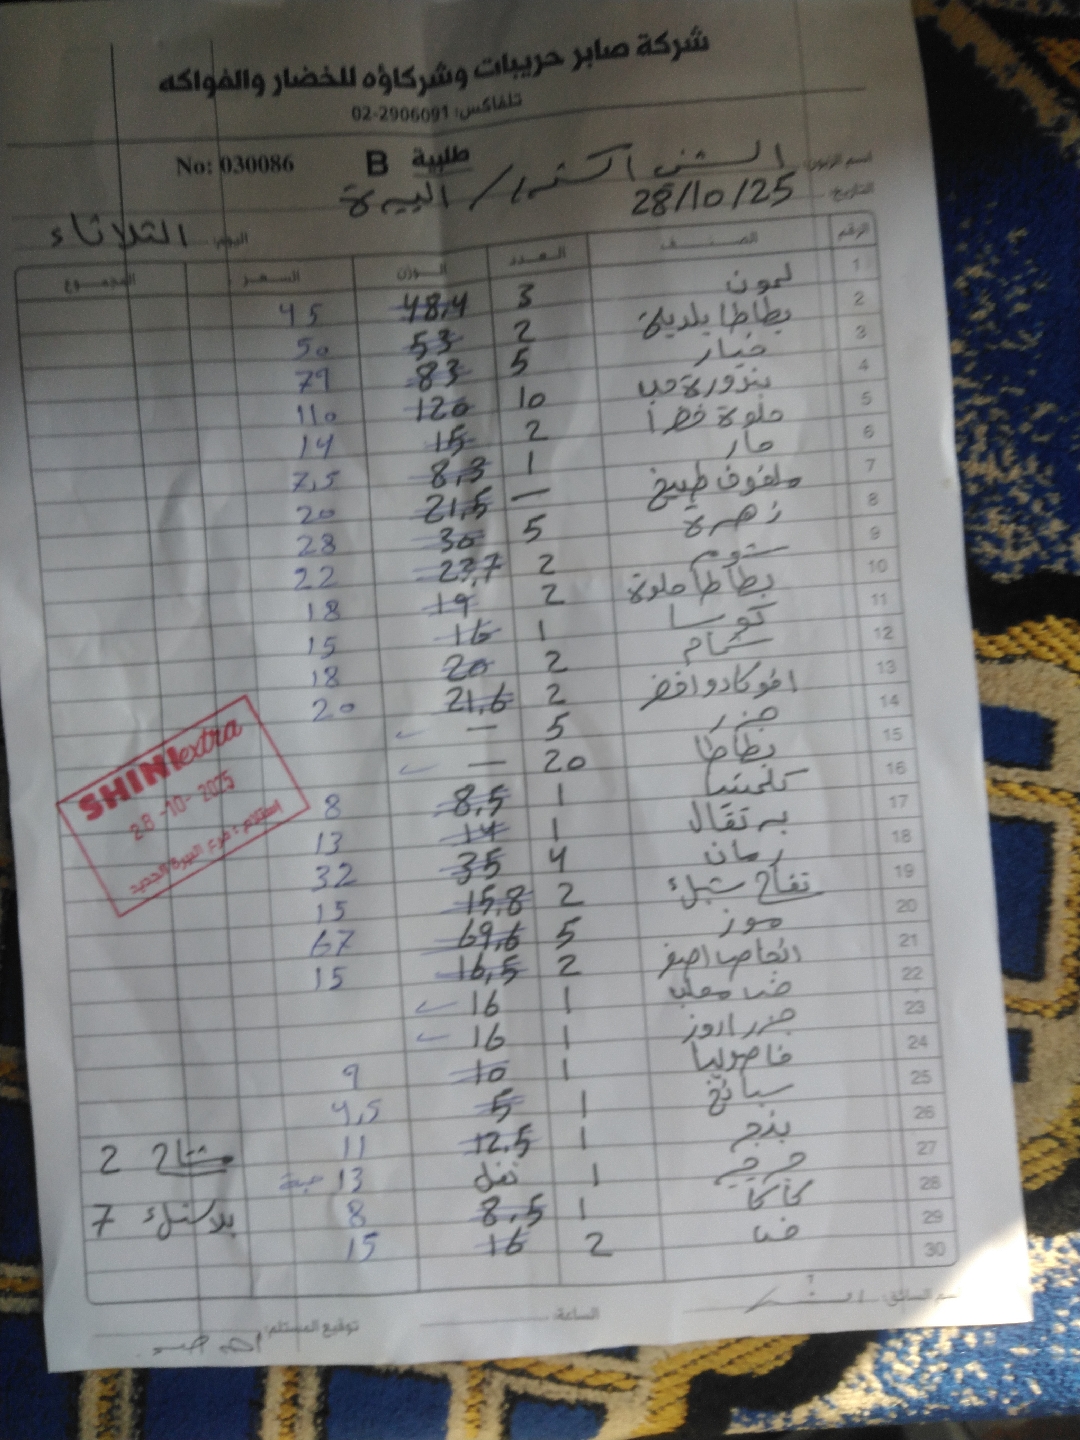 شركة صابر حريبات وشركاؤه للخضار والفواكه
تلفاكس: 02-2906091
No: 030086 B طلبية
اسم الزبون: الشني اكسترا / البيرة
التاريخ: 28/10/25
اليوم: الثلاثاء
الرقم الصنف العدد الوزن السعر المجموع
1 ليمون 3 48,4 45
2 بطاطا بلدية 2 53 50
3 خيار 5 83 79
4 بندورة حب 10 120 110
5 حلوة خضرا 2 15 14
6 حار 1 8,3 7,5
7 ملفوف طبيخ — 21,5 20
8 زهرة 5 30 28
9 ثوم 2 23,7 22
10 بطاطا حلوة 2 19 18
11 كوسا 1 16 15
12 شمام 2 20 18
13 افوكادو اخضر 2 21,6 20
14 جزر 5 —
15 بطاطا 20 —
16 كلمنتينا 1 8,5 8
17 برتقال 1 14 13
18 رمان 4 35 32
19 تفاح 2 15,8 15
20 موز 5 69,6 67
21 انجاص اصفر 2 16,5 15
22 1 16
23 جزر 1 16
24 فاصوليا 1 10 9
25 سبانخ 1 5 4,5
26 1 12.5 11
27 جرجير 1 13 حبة
28 كاكا 1 8,5 8
29 2 16 15
30
مشتاح 2
بلاستيك 7
SHINI extra
28-10-2025
استلام: فرع البيرة الجديد
اسم السائق:
الساعة:
توقيع المستلم: